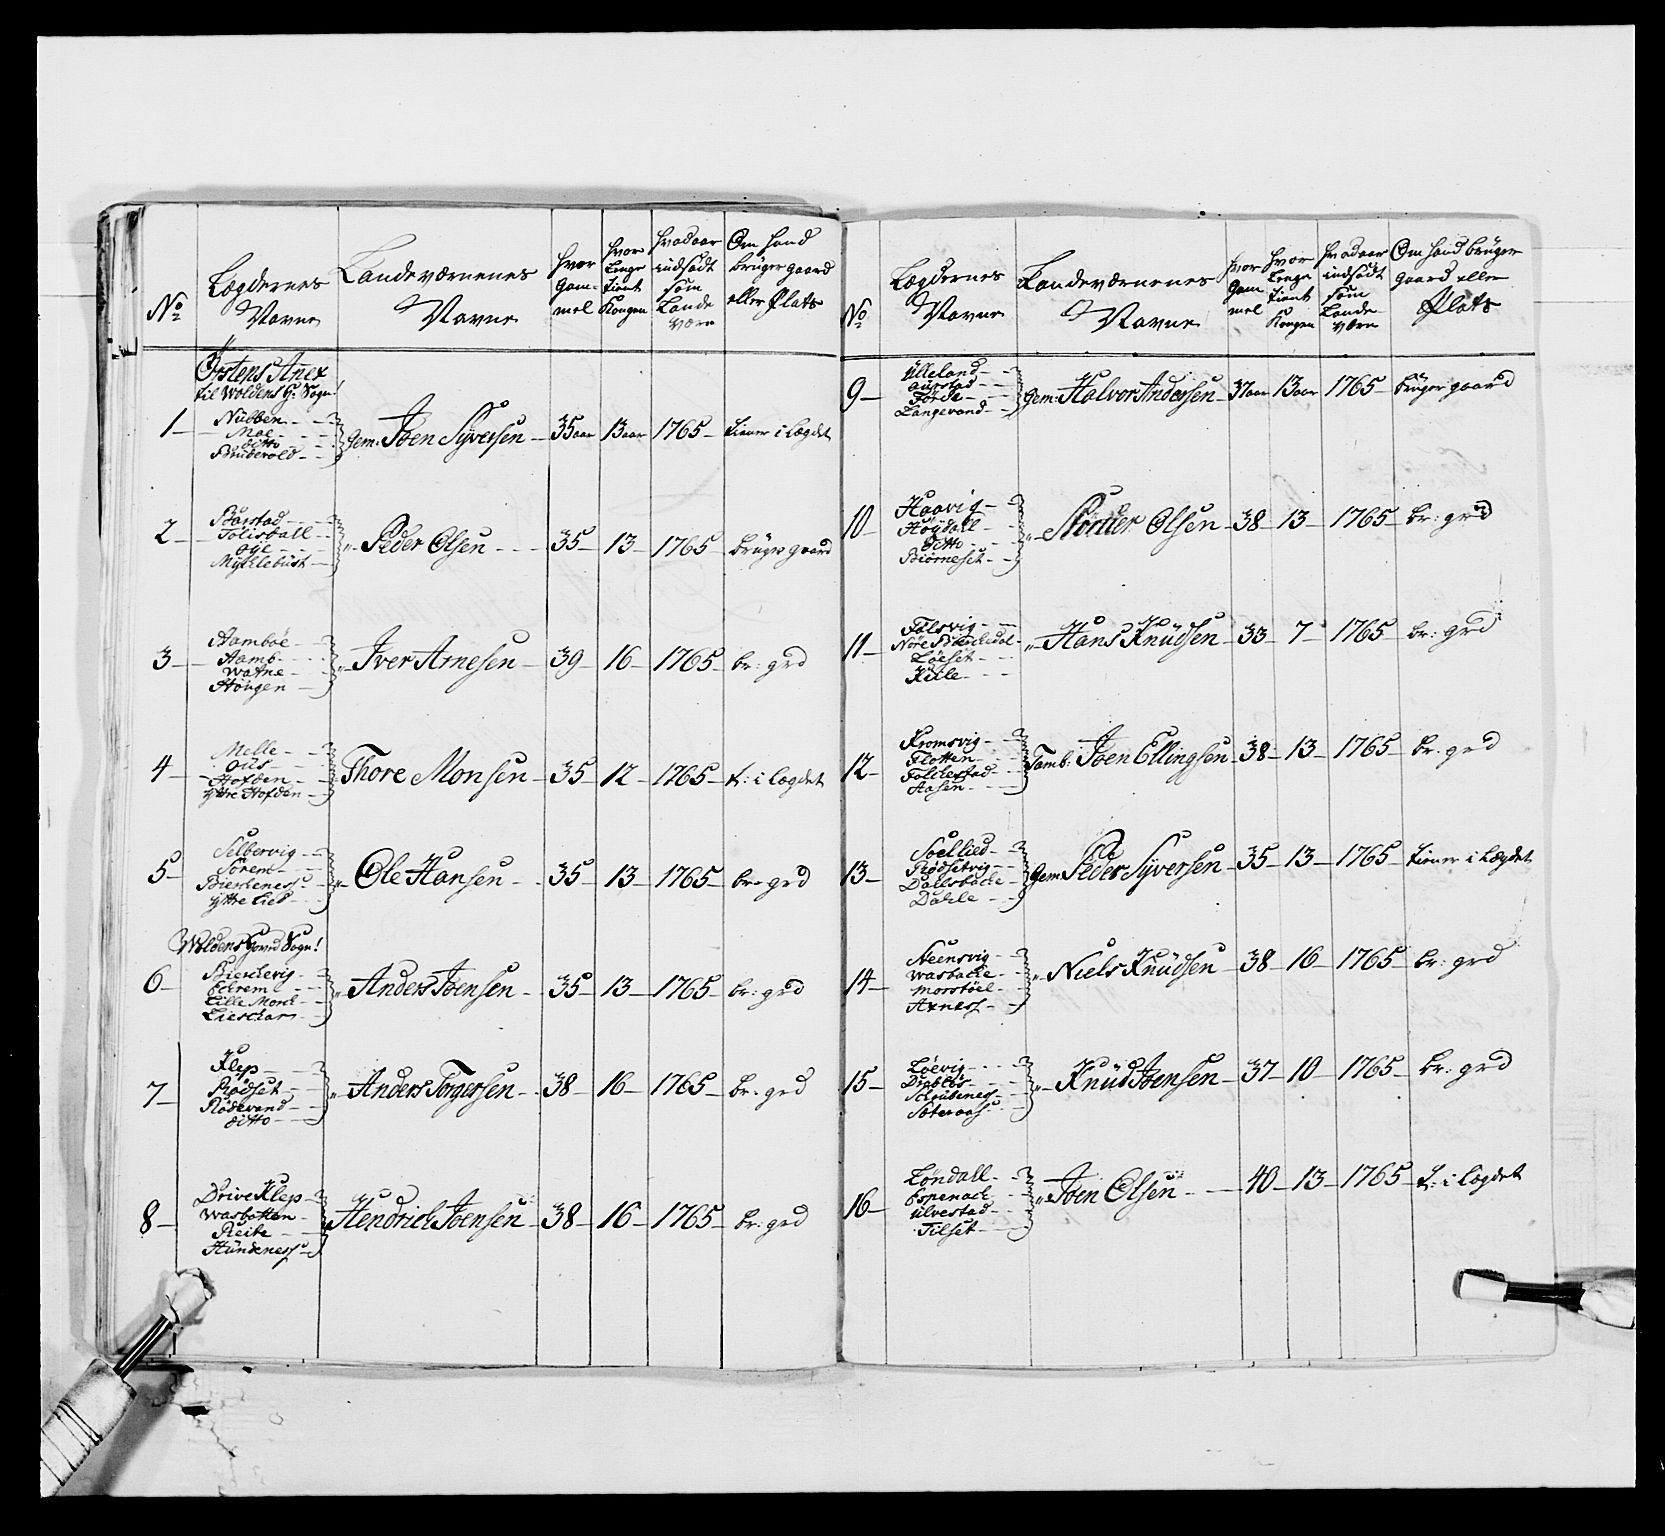 No
Lægdernes Navne
Landeværnenes Navne
hvor Gam-mel
hvor Lenge tient Kongen
hvad aar indsadt som Lande værn
Om hand bruger gaard eller Plats
Ørstens Anex
til Woldens H: Sogn!
1 — Nübben
Moe
ditto
Gem: Joen Syversen — 35 aar 13 aar 1765 — tiener i Lægdet
2 — Barstad
Follisdall
Øye
Mychlebust
„ Peder Olsen — 35 — 13 — 1765 — bruger gaard
3 — Aamboe
Aamb
Watne
Hougen
„ Iver Arnesen — 39 16 — 1765 — br: grd
4 — Melle
Øüs
Hofden
yttre Hofden
Thore Monsen — 35 12 — 1765 — t: i Lægdet
5 — Selbervig
Sörem
Bierchenes
yttre Lied
„ Ole Hansen — 35 — 13 — 1765 — br: grd
Woldens Hoved Sogn!
6 — Bierchevig
Echrem
Lille Mord
Lieschar
„ Anders Joensen — 35 — 13 — 1765 — br: grd
7 — Klep
Rödset
Rödevand
ditto
„ Anders Torgersen — 38 — 16 — 1765 — br: grd
8 — Drive Klep
Wasbotten
Reite
Hündenes
„ Hendrich Joensen — 38 — 16 — 1765 — br: grd
No
Lægdernes Navne
Landeværnenes Navne
hvor Gam mel
hvor Lenge tient Kongen
hvad aar indsadt som Lande værn
Om hand brüger gaard eller Plats
9 — Ülleland
Aurstad
Förde
Langevand
Gem: Halvor Andersen — 37 aar 13 aar 1765 — brüger gaard
10 — Haavig
Høydall
ditto
Biørneset
„ Olsen — 38 — 13 — 1765 — br: grd
11 — Folsvig
Løeset
Kile
„ Hans Knüdsen — 33 — 7 — 1765 — br: grd
12 — Kromsvig
Flotten
Folchestad
Aasen
Tamb: Joen Ellingsen — 38 — 13 — 1765 — br: grd
13 — Soellied
Rødsetvig
Dallsbache
Dahle
Gem Peder Syversen — 35 — 13 — 1765 tiener i Lægdet
14 — Steensvig
Wasbache
Morstöel
Aanes
„ Niels Knüdsen — 38 — 16 — 1765 — br: grd
15 — Løevig
„ Knüd Joensen — 37 — 10 — 1765 — br: grd
16 — Löndall
Espenach
Ulvestad
Tilset
„ Joen Olsen — 40 — 13 — 1765 — t: i Lægdet